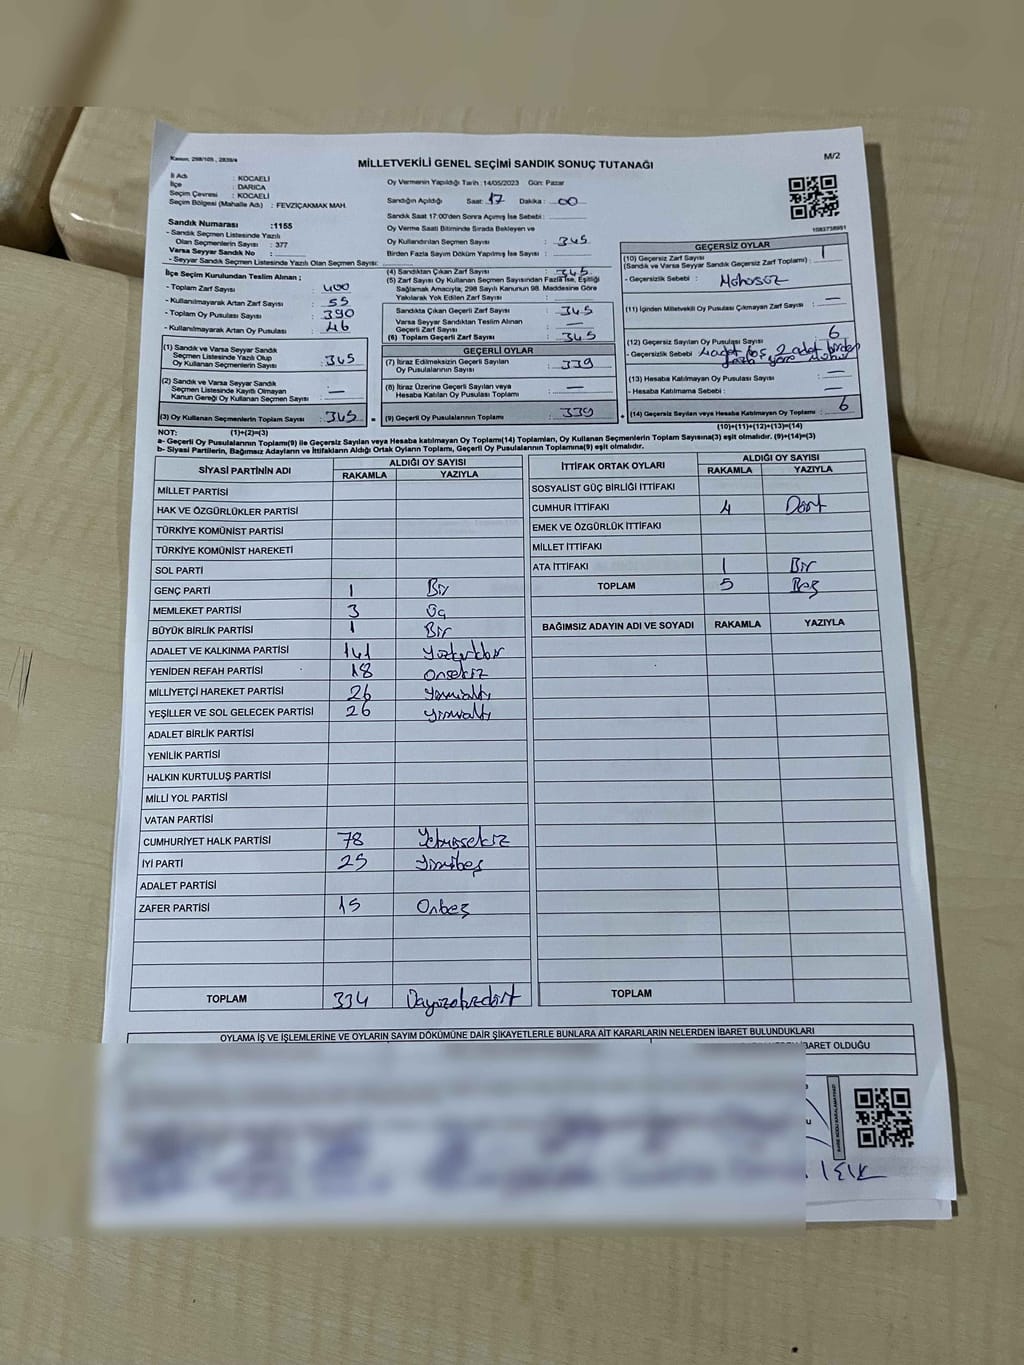 Kanun, 298/105 , 2839/4
MİLLETVEKİLİ GENEL SEÇİMİ SANDIK SONUÇ TUTANAĞI
M/2
İli Adı : KOCAELİ
İlçe : DARICA
Seçim Çevresi : KOCAELİ
Seçim Bölgesi (Mahalle Adı) : FEVZİÇAKMAK MAH.
Sandık Numarası :1155
- Sandık Seçmen Listesinde Yazılı
Olan Seçmenlerin Sayısı : 377
Varsa Seyyar Sandık No :
- Seyyar Sandık Seçmen Listesinde Yazılı Olan Seçmen Sayısı:
İlçe Seçim Kurulundan Teslim Alınan ;
- Toplam Zarf Sayısı : 400
- Kullanılmayarak Artan Zarf Sayısı : 55
- Toplam Oy Pusulası Sayısı : 390
- Kullanılmayarak Artan Oy Pusulası : 46
(1) Sandık ve Varsa Seyyar Sandık
Seçmen Listesinde Yazılı Olup
Oy Kullanan Seçmenlerin Sayısı : 345
(2) Sandık ve Varsa Seyyar Sandık
Seçmen Listesinde Kayıtlı Olmayan
Kanun Gereği Oy Kullanan Seçmenlerin Sayısı : —
(3) Oy Kullanan Seçmenlerin Toplam Sayısı : 345 =
Oy Vermenin Yapıldığı Tarih :14/05/2023 Gün: Pazar
Sandığın Açıldığı Saat: 17 Dakika : 00
Sandık Saat 17:00'den Sonra Açmış İse Sebebi :
Oy Verme Saati Bitiminde Sırada Bekleyen ve
Oy Kullandırılan Seçmen Sayısı : 345
Birden Fazla Sayım Döküm Yapılmış İse Sebebi :
(4) Sandıktan Çıkan Zarf Sayısı : 345
(5) Zarf Sayısı Oy Kullanan Seçmen Sayısından Fazla İse, Eşitliği
Sağlamak Amacıyla; 298 Sayılı Kanunun 98. Maddesine Göre
Yakılarak Yok Edilen Zarf Sayısı :
Sandıkta Çıkan Geçerli Zarf Sayısı : 345
Varsa Seyyar Sandıktan Teslim Alınan
Geçerli Zarf Sayısı : —
(6) Toplam Geçerli Zarf Sayısı : 345
GEÇERLİ OYLAR
(7) İtiraz Edilmeksizin Geçerli Sayılan
Oy Pusulalarının Sayısı : 339
(8) İtiraz Üzerine Geçerli Sayılan veya
Hesaba Katılan Oy Pusulası Toplamı : —
(9) Geçerli Oy Pusulalarının Toplamı : 339 +
1583738951
GEÇERSİZ OYLAR
(10) Geçersiz Zarf Sayısı
(Sandık ve Varsa Seyyar Sandık Geçersiz Zarf Toplamı) : 1
- Geçersizlik Sebebi : Mühürsüz
(11) İçinden Milletvekili Oy Pusulası Çıkmayan Zarf Sayısı : —
(12) Geçersiz Sayılan Oy Pusulası Sayısı : 6
- Geçersizlik Sebebi : 4 adet boş 2 adet birden
fazla yere mühür
(13) Hesaba Katılmayan Oy Pusulası Sayısı : —
- Hesaba Katılmama Sebebi : —
(14) Geçersiz Sayılan veya Hesaba Katılmayan Oy Toplamı : 6
NOT: (1)+(2)=(3) (10)+(11)+(12)+(13)=(14)
a- Geçerli Oy Pusulalarının Toplamı(9) ile Geçersiz Sayılan veya Hesaba katılmayan Oy Toplamı(14) Toplamları, Oy Kullanan Seçmenlerin Toplam Sayısına(3) eşit olmalıdır. (9)+(14)=(3)
b- Siyasi Partilerin, Bağımsız Adayların ve İttifakların Aldığı Ortak Oyların Toplamı, Geçerli Oy Pusulalarının Toplamına(9) eşit olmalıdır.
SİYASİ PARTİNİN ADI ALDIĞI OY SAYISI
RAKAMLA YAZIYLA
MİLLET PARTİSİ
HAK VE ÖZGÜRLÜKLER PARTİSİ
TÜRKİYE KOMÜNİST PARTİSİ
TÜRKİYE KOMÜNİST HAREKETİ
SOL PARTİ
GENÇ PARTİ 1 Bir
MEMLEKET PARTİSİ 3 Üç
BÜYÜK BİRLİK PARTİSİ 1 Bir
ADALET VE KALKINMA PARTİSİ 141 Yüzkırkbir
YENİDEN REFAH PARTİSİ 18 Onsekiz
MİLLİYETÇİ HAREKET PARTİSİ 26 Yirmialtı
YEŞİLLER VE SOL GELECEK PARTİSİ 26 Yirmialtı
ADALET BİRLİK PARTİSİ
YENİLİK PARTİSİ
HALKIN KURTULUŞ PARTİSİ
MİLLİ YOL PARTİSİ
VATAN PARTİSİ
CUMHURİYET HALK PARTİSİ 78 Yetmişsekiz
İYİ PARTİ 25 Yirmibeş
ADALET PARTİSİ
ZAFER PARTİSİ 15 Onbeş
TOPLAM 334 Üçyüzotuzdört
İTTİFAK ORTAK OYLARI ALDIĞI OY SAYISI
RAKAMLA YAZIYLA
SOSYALİST GÜÇ BİRLİĞİ İTTİFAKI
CUMHUR İTTİFAKI 4 Dört
EMEK VE ÖZGÜRLÜK İTTİFAKI
MİLLET İTTİFAKI
ATA İTTİFAKI 1 Bir
TOPLAM 5 Beş
BAĞIMSIZ ADAYIN ADI VE SOYADI RAKAMLA YAZIYLA
TOPLAM
OYLAMA İŞ VE İŞLEMLERİNE VE OYLARIN SAYIM DÖKÜMÜNE DAİR ŞİKAYETLERLE BUNLARA AİT KARARLARIN NELERDEN İBARET BULUNDUKLARI
İBARET OLDUĞU